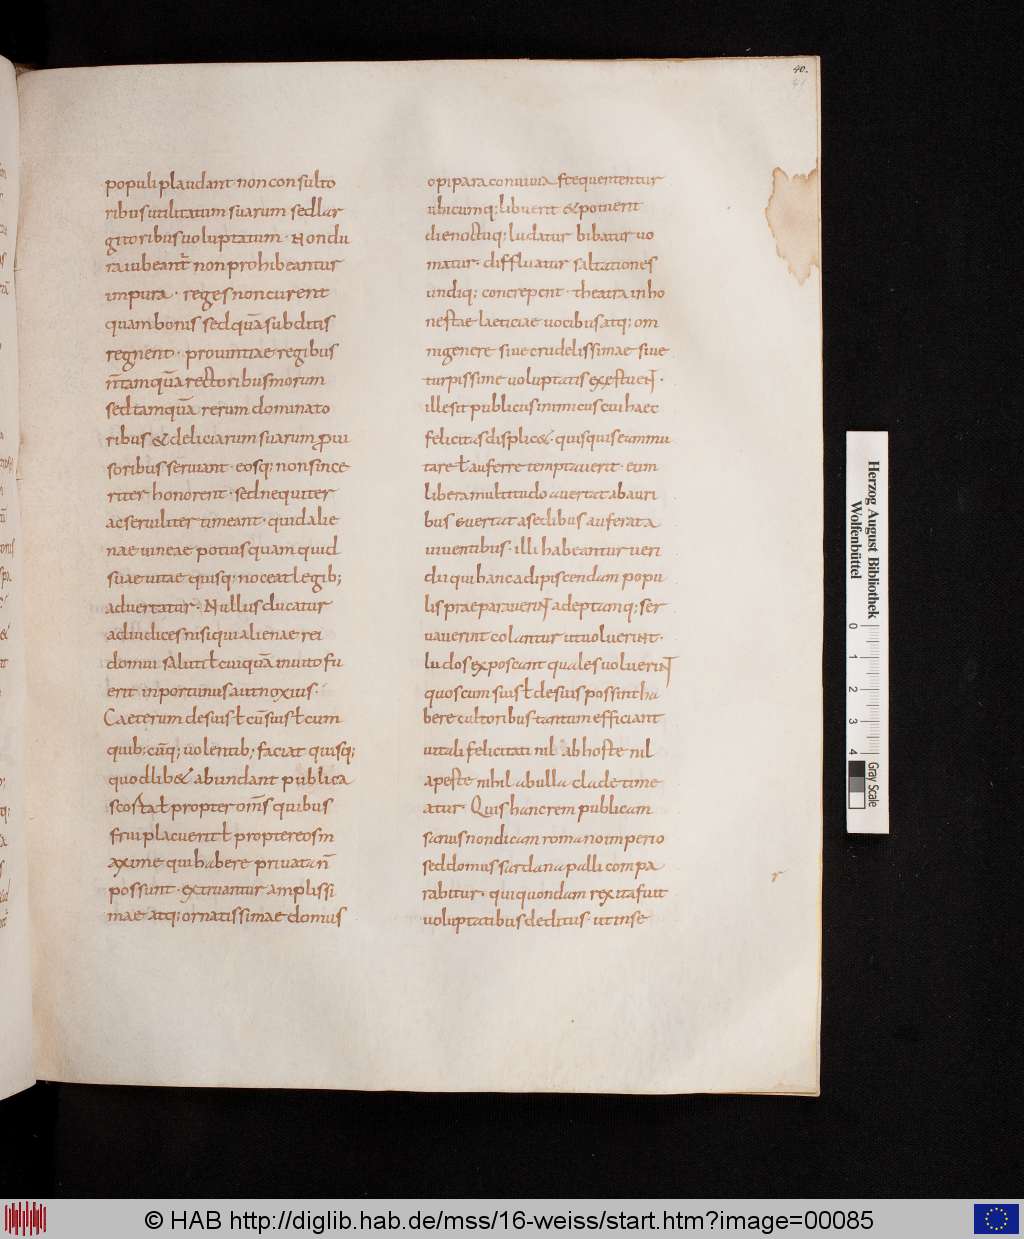 40.
populi plaudant non consulto
ribus utilitatum suarum sed lar
gitoribus voluptatum · Non du
ra iubeant̄ non prohibeantur
impura · reges non curent
quam bonis sed quā subditis
regnent · provintiae regibus
n̄ tamquā rectoribus morum
sed tamquā rerum dominato
ribus & deliciarum suarum ꝓvi
soribus serviant · eosq; non since
riter honorent · sed nequiter
ac serviliter timeant · quid alie
nae vineae potius quam quid
suae vitae quisq; noceat legib;
advertatur · Nullus ducatur
ad iudices nisi qui alienae rei
domui saluti ł cuiquā invito fu
erit inportunus aut noxius ·
Caeterum de suis ł cū suis ł cum
quib;cūq; volentib; faciat quisq;
quod lib& abundant publica
scorta ł propter om̄s quibus
frui placuerit ł propter eos m
axime qui habere privata n̄
possunt · extruantur amplissi
mae atq; ornatissimae domus
opipara convivia frequententur
ubi cuiq; libuerit & potuerit
die noctuq; ludatur bibatur vo
matur · diffluatur saltationes
undiq; concrepent · theatra inho
nestae laeticiae vocibus atq; om
ni genere sive crudelissimae sive
turpissime voluptatis exestuent ·
ille sit publicus inimicus cui haec
felicitas displic& · quisquis eam mu
tare ł auferre temptaverit · eum
libera multitudo avertat ab auri
bus evertat a sedibus auferat a
viventibus · illi habeantur veri
dii qui hanc adipiscendam popu
lis praeparaverint adeptamq; ser
vaverint colantur ut voluerint ·
ludos exposcant quales voluerint
quos cum suis ł de suis possint ha
bere cultoribus tantum efficiant
ut tali felicitati nil ab hoste nil
a peste nihil ab ulla clade time
atur · Quis hanc rem publicam
sanus non dicam romano imperio
sed domui sardanapalli compa
rabitur · qui quondam rex ita fuit
voluptatibus deditus · ut in se
r
Herzog August Bibliothek
Wolfenbüttel
0 1 2 3 4
Gray Scale
© HAB http://diglib.hab.de/mss/16-weiss/start.htm?image=00085